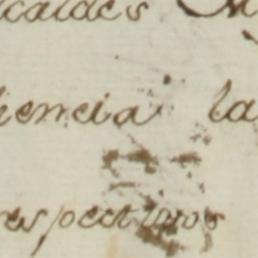 lcaldes
iencia la
respectivos